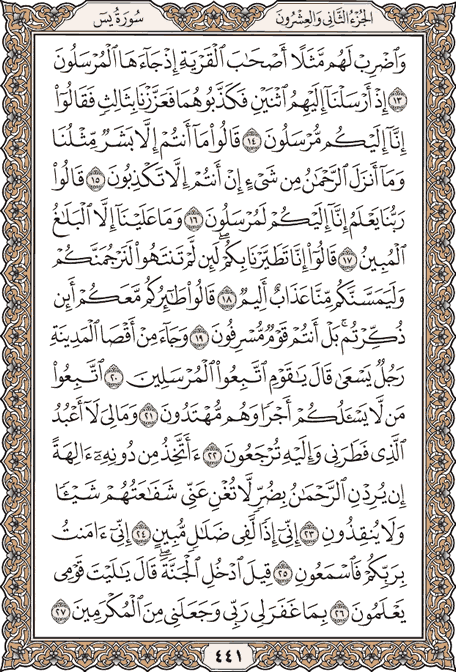 الجزء الثاني والعشرون
سورة يس
وَٱضْرِبْ لَهُم مَّثَلًا أَصْحَٰبَ ٱلْقَرْيَةِ إِذْ جَآءَهَا ٱلْمُرْسَلُونَ
١٣ إِذْ أَرْسَلْنَآ إِلَيْهِمُ ٱثْنَيْنِ فَكَذَّبُوهُمَا فَعَزَّزْنَا بِثَالِثٍ فَقَالُوٓا۟
إِنَّآ إِلَيْكُم مُّرْسَلُونَ ١٤ قَالُوا۟ مَآ أَنتُمْ إِلَّا بَشَرٌ مِّثْلُنَا
وَمَآ أَنزَلَ ٱلرَّحْمَٰنُ مِن شَىْءٍ إِنْ أَنتُمْ إِلَّا تَكْذِبُونَ ١٥ قَالُوا۟
رَبُّنَا يَعْلَمُ إِنَّآ إِلَيْكُمْ لَمُرْسَلُونَ ١٦ وَمَا عَلَيْنَآ إِلَّا ٱلْبَلَٰغُ
ٱلْمُبِينُ ١٧ قَالُوٓا۟ إِنَّا تَطَيَّرْنَا بِكُمْ ۖ لَئِن لَّمْ تَنتَهُوا۟ لَنَرْجُمَنَّكُمْ
وَلَيَمَسَّنَّكُم مِّنَّا عَذَابٌ أَلِيمٌ ١٨ قَالُوا۟ طَٰٓئِرُكُم مَّعَكُمْ ۚ أَئِن
ذُكِّرْتُم ۚ بَلْ أَنتُمْ قَوْمٌ مُّسْرِفُونَ ١٩ وَجَآءَ مِنْ أَقْصَا ٱلْمَدِينَةِ
رَجُلٌ يَسْعَىٰ قَالَ يَٰقَوْمِ ٱتَّبِعُوا۟ ٱلْمُرْسَلِينَ ٢٠ ٱتَّبِعُوا۟
مَن لَّا يَسْـَٔلُكُمْ أَجْرًا وَهُم مُّهْتَدُونَ ٢١ وَمَا لِىَ لَآ أَعْبُدُ
ٱلَّذِى فَطَرَنِى وَإِلَيْهِ تُرْجَعُونَ ٢٢ ءَأَتَّخِذُ مِن دُونِهِۦٓ ءَالِهَةً
إِن يُرِدْنِ ٱلرَّحْمَٰنُ بِضُرٍّ لَّا تُغْنِ عَنِّى شَفَٰعَتُهُمْ شَيْـًٔا
وَلَا يُنقِذُونِ ٢٣ إِنِّىٓ إِذًا لَّفِى ضَلَٰلٍ مُّبِينٍ ٢٤ إِنِّىٓ ءَامَنتُ
بِرَبِّكُمْ فَٱسْمَعُونِ ٢٥ قِيلَ ٱدْخُلِ ٱلْجَنَّةَ ۖ قَالَ يَٰلَيْتَ قَوْمِى
يَعْلَمُونَ ٢٦ بِمَا غَفَرَ لِى رَبِّى وَجَعَلَنِى مِنَ ٱلْمُكْرَمِينَ ٢٧
٤٤١